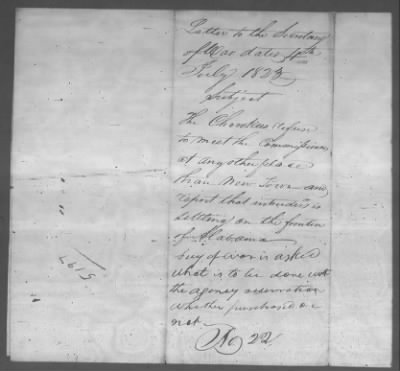 Letter to the Secretary
of War dated 4th
July 1823
Subject
The Cherokees refuse
to meet the Commissioners
at any other place
than New Town and
report that intruders is
settling on the frontier
of Alabama
Secy of War is asked
what is to be done with
the agency reservation
whether purchased or
not.
No 22